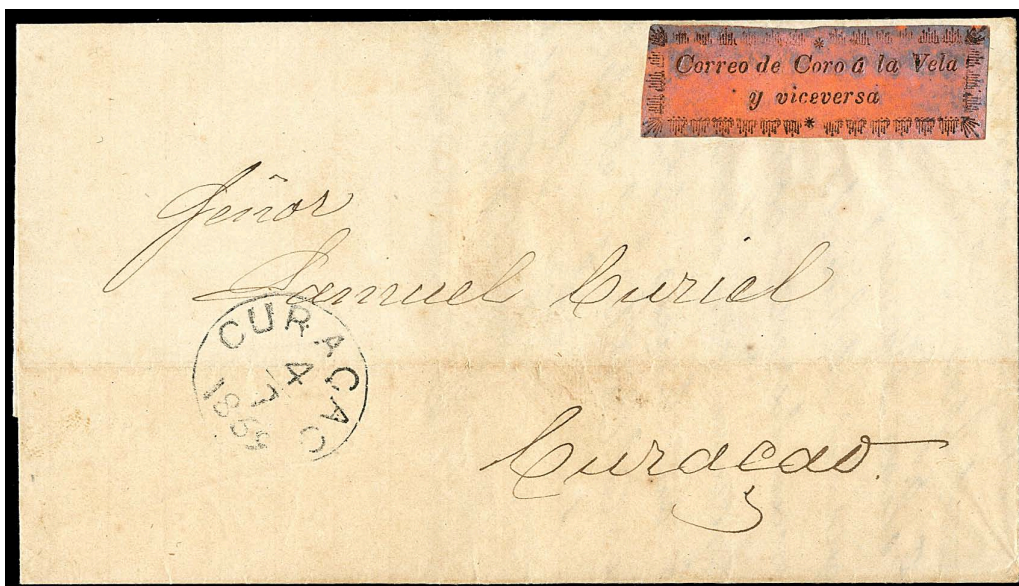 Correo de Coro á la Vela
y viceversa
Señor
Samuel Curiel
CURACAO
4
7
Curaçao.